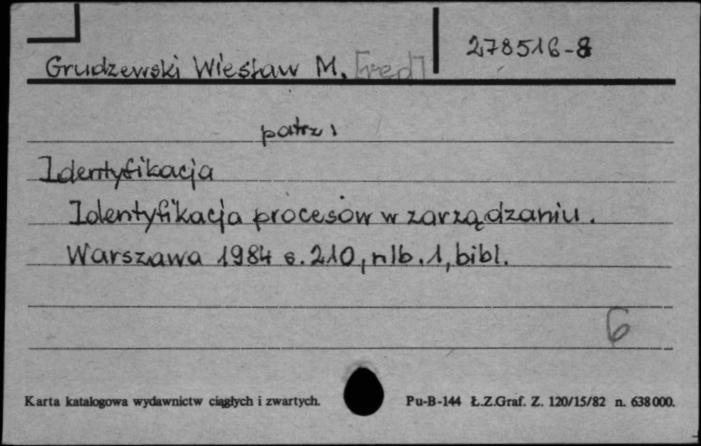 278516-8
Grudzewski Wiesław M. [red]
patrz:
Identyfikacja
Identyfikacja procesów w zarządzaniu.
Warszawa 1984 s. 210, nlb. 1, bibl.
6
Karta katalogowa wydawnictw ciągłych i zwartych. Pu-B-144 Ł.Z.Graf. Z. 120/15/82 n. 638000.